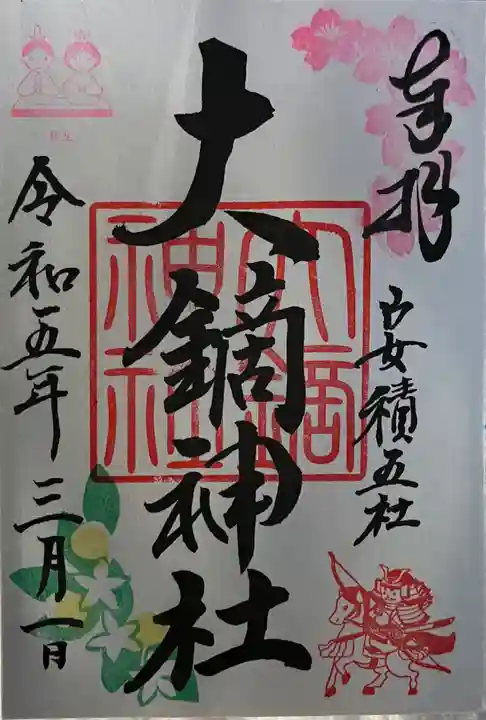 奉拝
安積五社
大鏑神社
大鏑神社
令和五年三月一日
弥生